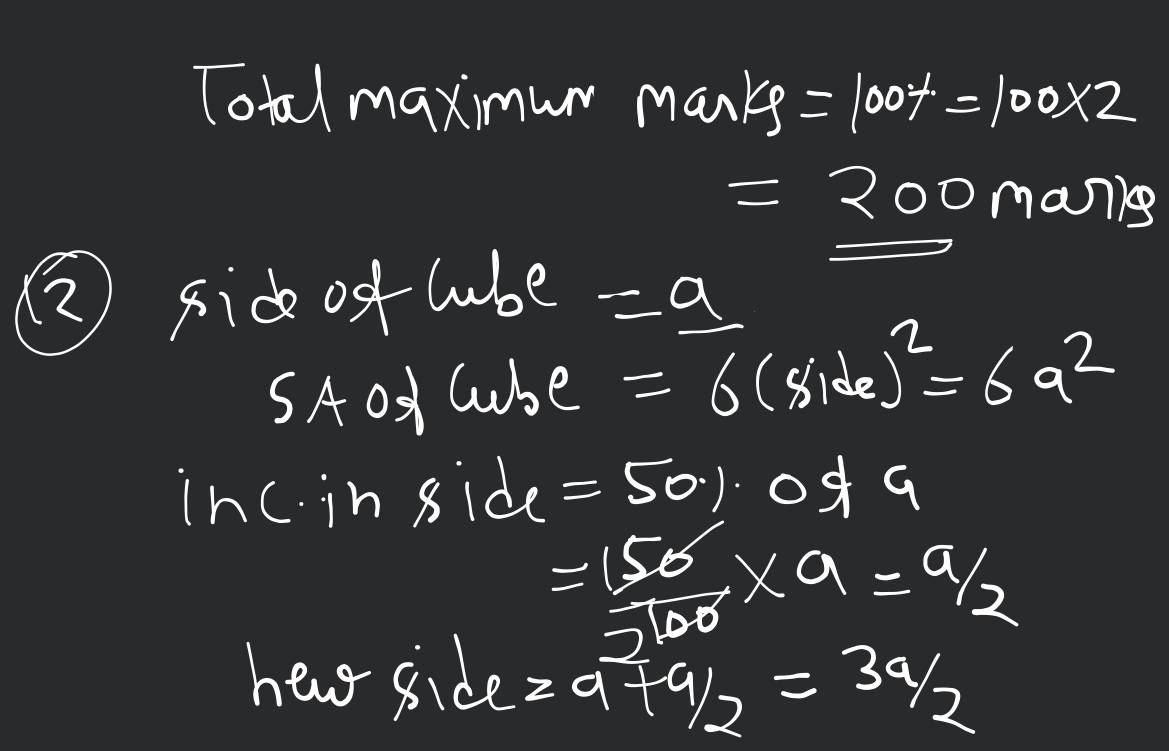 Total maximum marks = 100% = 100×2
= 200 marks
12 side of Cube = a
SA of Cube = 6(side)² = 6a²
inc. in side = 50% of a
= 1 50/2 100 × a = a/2
new side = a + a/2 = 3a/2